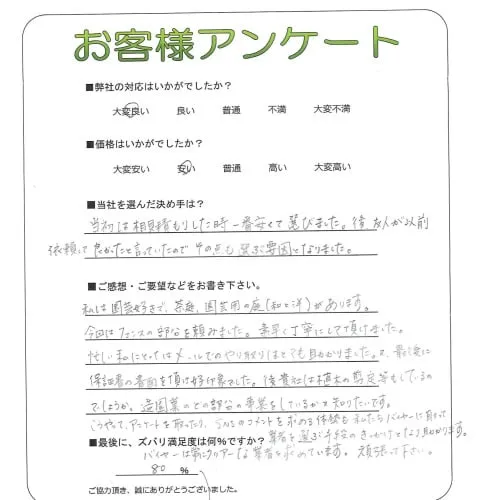 お客様アンケート
■弊社の対応はいかがでしたか？
大変良い 良い 普通 不満 大変不満
■価格はいかがでしたか？
大変安い 安い 普通 高い 大変高い
■当社を選んだ決め手は？
当初は相見積もりした時一番安くて選びました。後、友人が以前
依頼して良かったと言っていたので その点も選ぶ要因となりました。
■ご感想・ご要望などをお書き下さい。
私は園芸好きで、茶庭、園芸用の庭(和と洋)があります。
今回はフェンスの部分を頼みました。素早く丁寧にして頂けました。
忙しい私にとってはメールでのやり取りはとても助かりました。 最後に
保証書の書面を頂け好印象でした。後貴社は植木の剪定等もしているの
でしょうか。造園業のどの部分の事業をしているか知りたいです。
こうやって、アンケートを取ったり、SNSのコメントを求める体勢も私たちバイヤーに有って
■最後に、ズバリ満足度は何%ですか？
業者を選ぶ手段のきっかけとなり助かります。
バイヤーは常にクリアーな業者を求めています。頑張って下さい。
80 %
ご協力頂き、誠にありがとうございました。